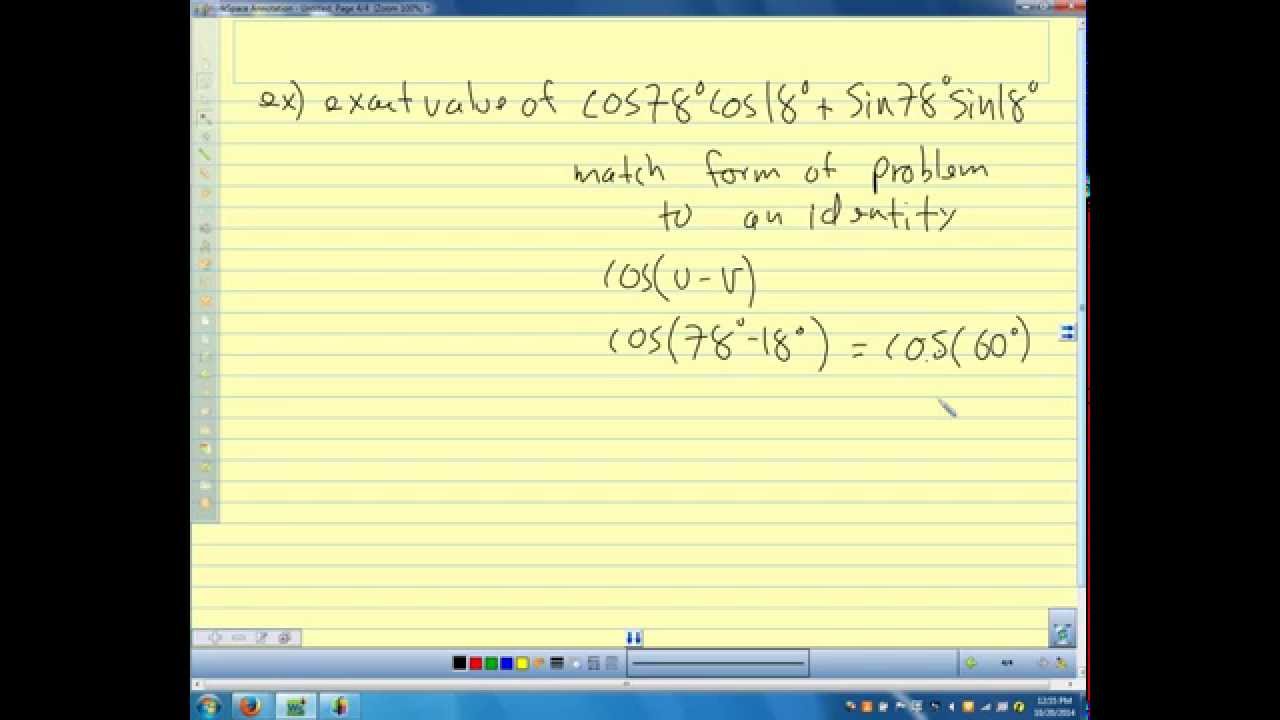 kSpace Annotation - Untitled, Page 4/4 (Zoom 100%) *
ex) exact value of cos78°cos18° + sin78°sin18°
match form of problem
to an identity
cos(u-v)
cos(78°-18°) = cos(60°)
4/4
12:55 PM
10/20/2014